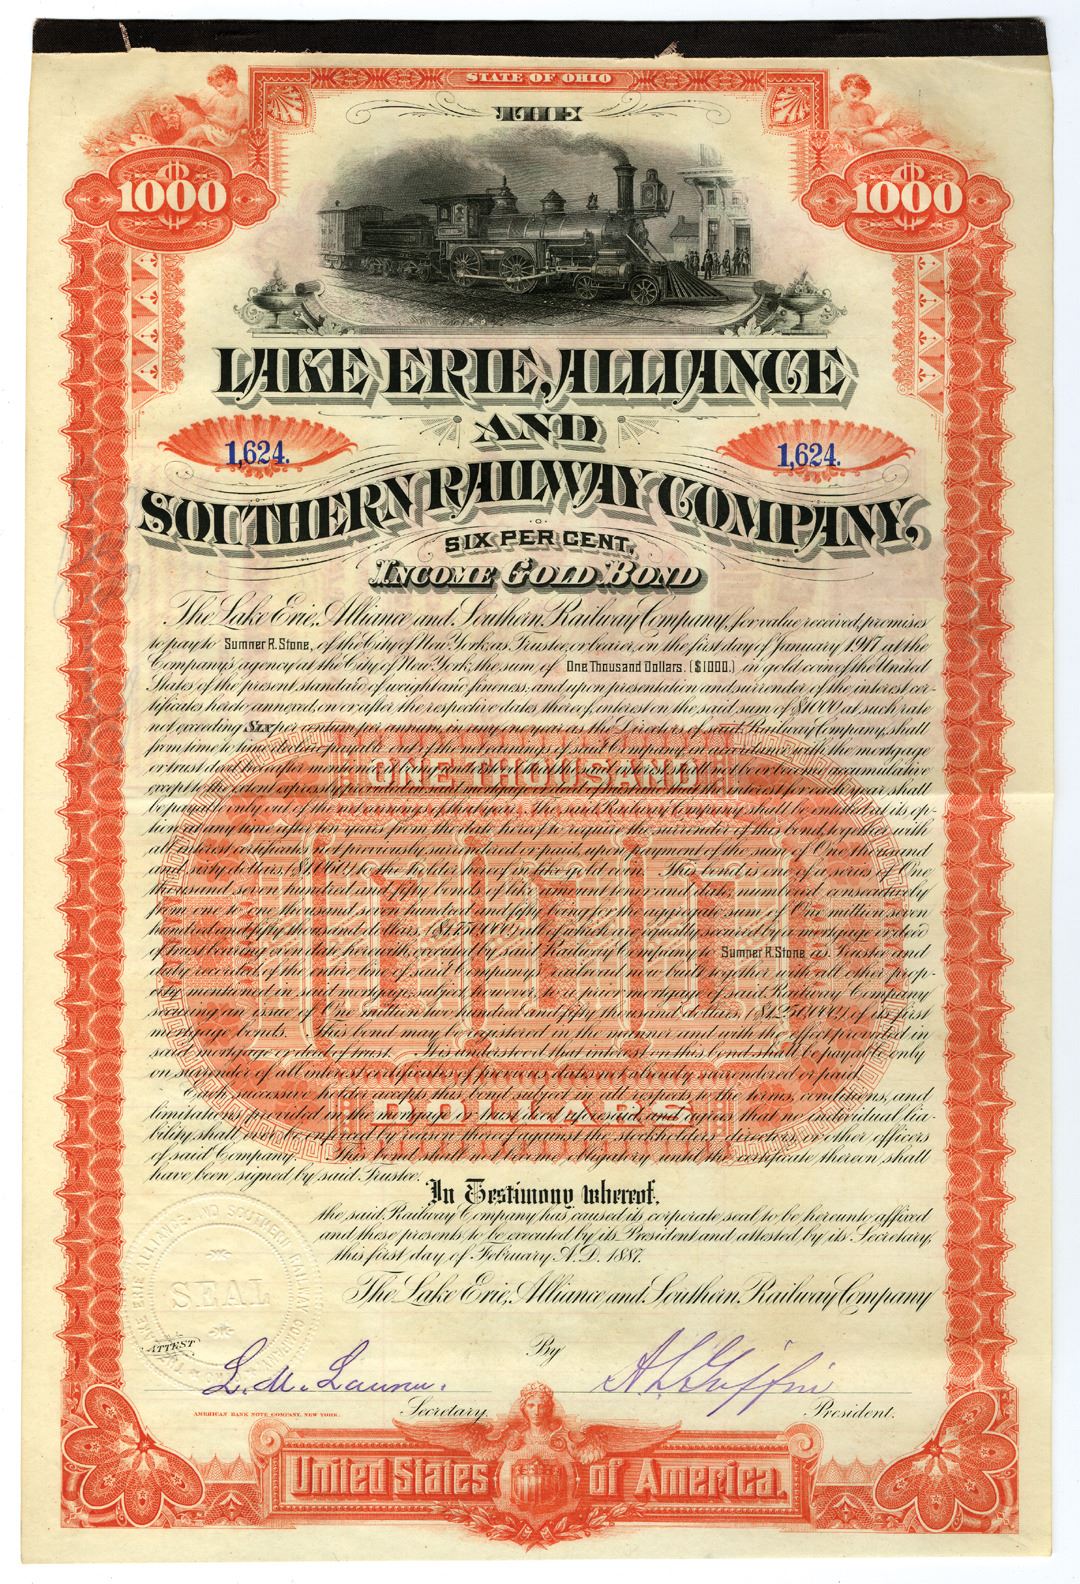 STATE OF OHIO
THE
1000
1000
LAKE ERIE, ALLIANCE
AND
1,624.
1,624.
SOUTHERN RAILWAY COMPANY,
SIX PER CENT,
INCOME GOLD BOND
The Lake Erie, Alliance and Southern Railway Company, for value received, promises
to pay to Sumner R. Stone, of the City of New York, as Trustee, or bearer, on the first day of January 1917 at the
Company's agency at the City of New York, the sum of One Thousand Dollars. ($1000.) in gold coin of the United
States of the present standard of weight and fineness, and upon presentation and surrender of the interest cer-
tificates hereto annexed, on or after the respective dates thereof, interest on the said sum of $1000 at such rate
not exceeding Six per centum per annum, in any one year as the Directors of said Railway Company, shall
from time to time declare payable out of the net earnings of said Company, in accordance with the mortgage
or trust deed hereafter mentioned, it being understood that the said interest shall not be or become accumulative
except to the extent expressly provided in said mortgage or deed of trust and that the interest for each year shall
be payable only out of the net earnings of that year. The said Railway Company shall be entitled at its op-
tion at any time after ten years from the date hereof to require the surrender of this bond, together with
all interest certificates not previously surrendered or paid, upon payment of the sum of One thousand
and sixty dollars ($1060.) to the holder hereof in like gold coin. This bond is one of a series of One
thousand seven hundred and fifty bonds of like amount tenor and date, numbered consecutively
from one to one thousand seven hundred and fifty being for the aggregate sum of One million seven
hundred and fifty thousand dollars, ($1,750,000.) all of which are equally secured by a mortgage or deed
of trust bearing even date herewith, executed by said Railway Company to Sumner R. Stone as Trustee and
duly recorded of the entire line of said Company's railroad now built together with all other prop-
erty mentioned in said mortgage, subject, however, to a prior mortgage of said Railway Company
securing an issue of One million two hundred and fifty thousand dollars ($1,250,000.) of its first
mortgage bonds. This bond may be registered in the manner and with the effect provided in
said mortgage or deed of trust. It is understood that interest on this bond shall be payable only
on surrender of all interest certificates of previous dates not already surrendered or paid.
Each successive holder accepts this bond subject in all respects to the terms, conditions, and
limitations provided in the mortgage or trust deed aforesaid, and agrees that no individual lia-
bility shall ever be enforced by reason thereof against the stockholders directors, or other officers
of said Company. This bond shall not become obligatory until the certificate thereon shall
have been signed by said Trustee.
ONE THOUSAND
DOLLARS
In Testimony whereof,
the said Railway Company has caused its corporate seal to be hereunto affixed
and these presents to be executed by its President and attested by its Secretary,
this first day of February A.D. 1887.
The Lake Erie, Alliance and Southern Railway Company
LAKE ERIE ALLIANCE AND SOUTHERN RAILWAY COMPANY
SEAL
ATTEST
By
Secretary.
President.
AMERICAN BANK NOTE COMPANY, NEW YORK.
United States of America.